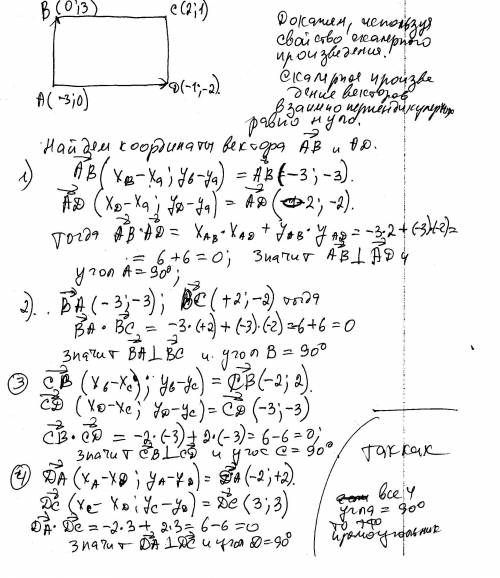 B (0; 3) C (2; 1)
A (-3; 0) D (-1; -2).
Докажем, используя
свойство скалярного
произведения.
Скалярное произве
дение векторов
взаимно перпендикулярных
равно нулю.
Найдем координаты вектора AB и AD.
1) AB (xB - xA; yB - yA) = AB (-3; -3).
AD (xD - xA; yD - yA) = AD (2; -2).
тогда AB · AD = xAB · xAD + yAB · yAD = -3·2 + (-3)·(-2) =
= 6 + 6 = 0; значит AB ⊥ AD и
угол A = 90°;
2). BA (-3; -3); BC (+2; -2) тогда
BA · BC = -3·(+2) + (-3)·(-2) = 6 + 6 = 0
значит BA ⊥ BC и угол B = 90°
3) CB (xB - xC; yB - yC) = CB (-2; 2).
CD (xD - xC; yD - yC) = CD (-3; -3)
CB · CD = -2·(-3) + 2·(-3) = 6 - 6 = 0;
значит CB ⊥ CD и угол C = 90°
4) DA (xA - xD; yA - yD) = DA (-2; +2).
DC (xC - xD; yC - yD) = DC (3; 3)
DA · DC = -2·3 + 2·3 = 6 - 6 = 0
значит DA ⊥ DC и угол D = 90°
так как
все 4
угла = 90°
то
прямоугольник